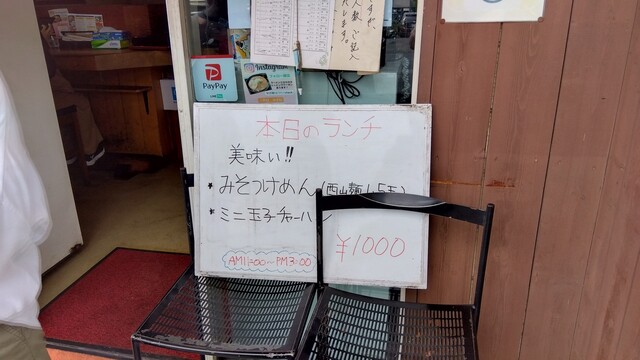 すが、
人数ご記入
します。
Instagram
PayPay
本日のランチ
美味い!!
* みそつけめん(西山麺1.5玉)
* ミニ玉子チャーハン
¥1000
AM11:00〜PM3:00